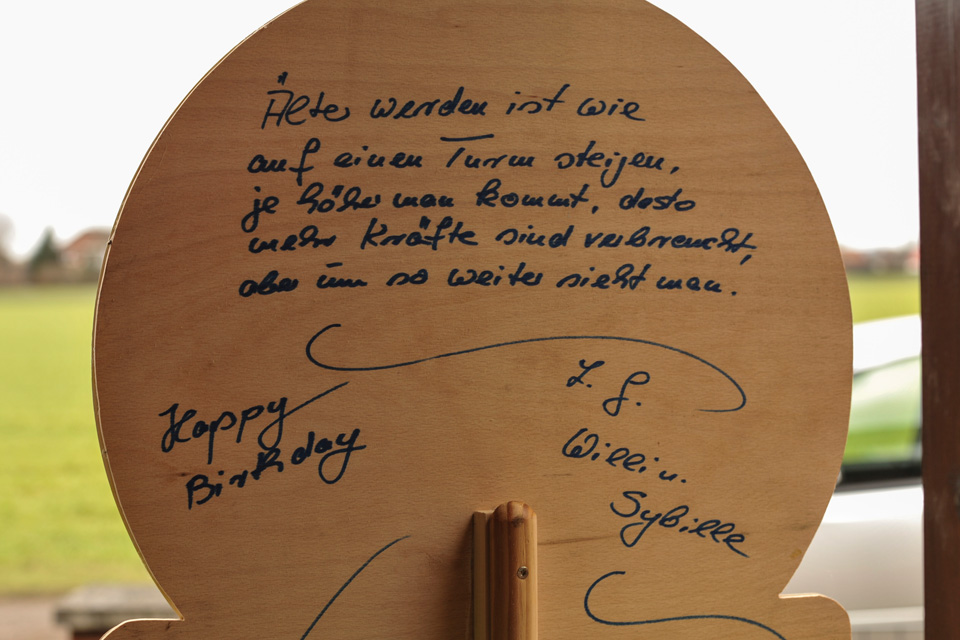 Älter werden ist wie
auf einen Turm steigen,
je höher man kommt, desto
mehr Kräfte sind verbraucht,
aber um so weiter sieht man.
Happy
Birthday
L. G.
Willi u.
Sybille